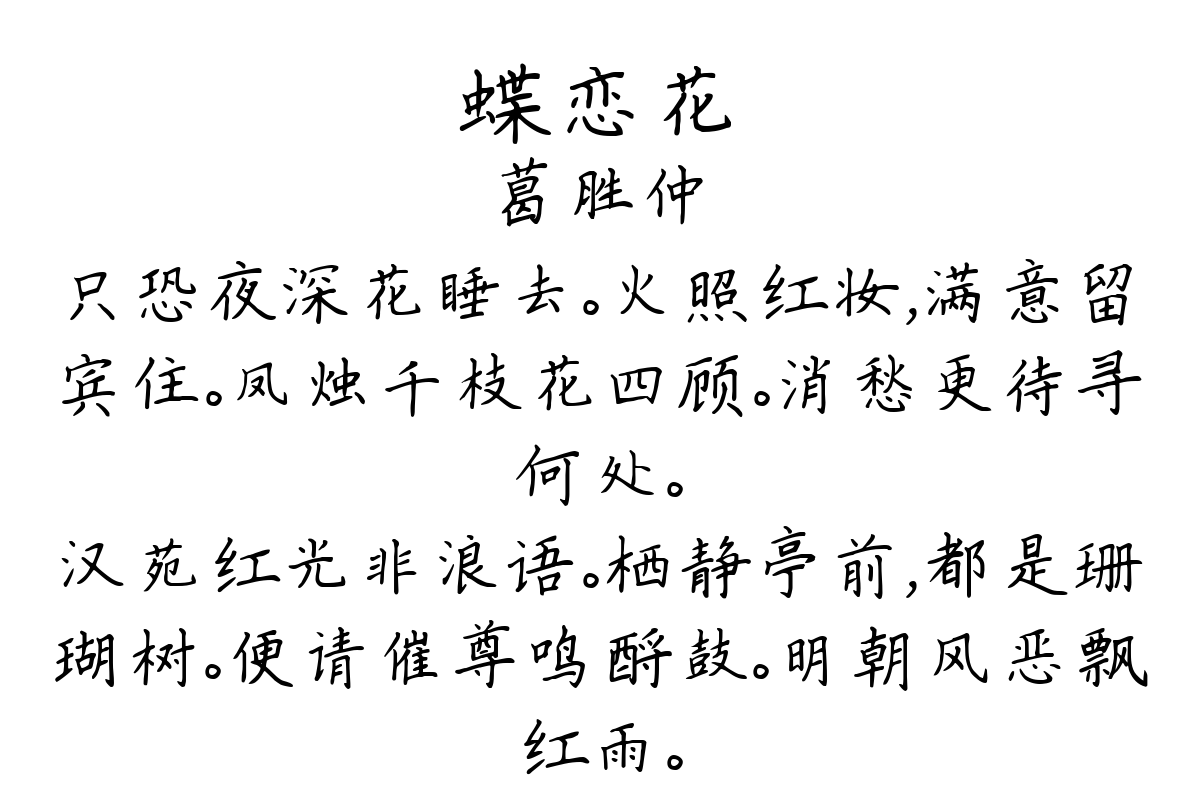 蝶恋花
葛胜仲
只恐夜深花睡去。火照红妆,满意留
宾住。凤烛千枝花四顾。消愁更待寻
何处。
汉苑红光非浪语。栖静亭前,都是珊
瑚树。便请催尊鸣酹鼓。明朝风恶飘
红雨。